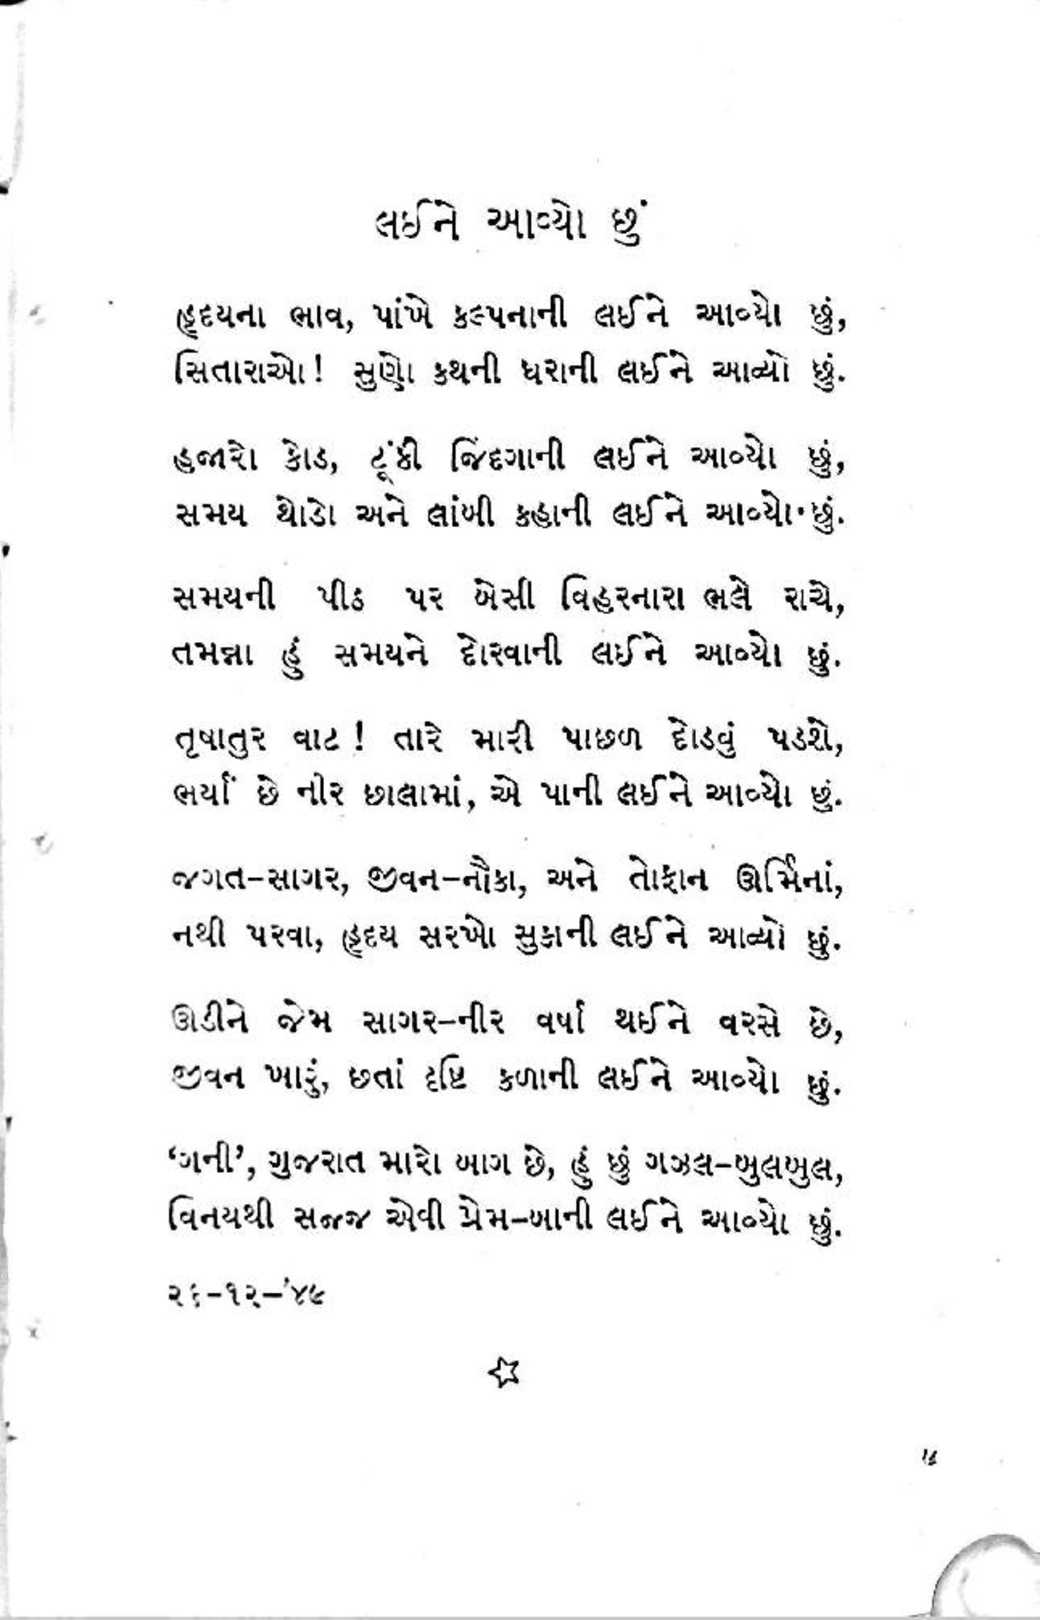 લઈને આવ્યો છું
હૃદયના ભાવ, પાંખે કલ્પનાની લઈને આવ્યો છું,
સિતારાઓ! સુણો કથની ધરાની લઈને આવ્યો છું.
હજારો કોડ, ટૂંકી જિંદગાની લઈને આવ્યો છું,
સમય થોડો અને લાંબી કહાની લઈને આવ્યો છું.
સમયની પીઠ પર બેસી વિહરનારા ભલે રાચે,
તમન્ના હું સમયને દોરવાની લઈને આવ્યો છું.
તૃષાતુર વાટ! તારે મારી પાછળ દોડવું પડશે,
ભર્યાં છે નીર છાલામાં, એ પાની લઈને આવ્યો છું.
જગત-સાગર, જીવન-નૌકા, અને તોફાન ઊર્મિનાં,
નથી પરવા, હૃદય સરખો સુકાની લઈને આવ્યો છું.
ઊડીને જેમ સાગર-નીર વર્ષા થઈને વરસે છે,
જીવન ખારું, છતાં દૃષ્ટિ કળાની લઈને આવ્યો છું.
‘ગની’, ગુજરાત મારો બાગ છે, હું છું ગઝલ-બુલબુલ,
વિનયથી સજ્જ એવી પ્રેમ-બાની લઈને આવ્યો છું.
૨૬-૧૨-’૪૯